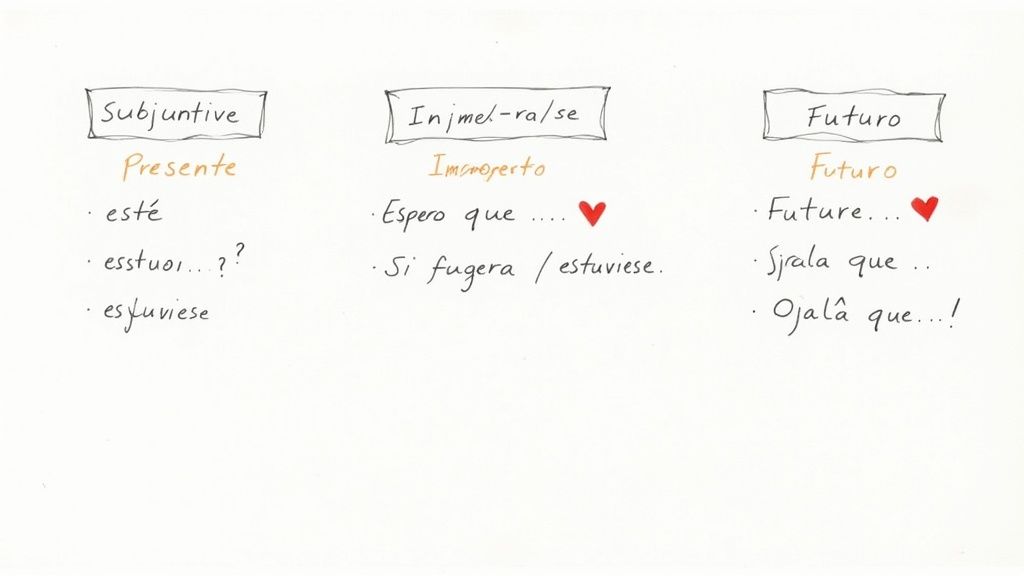 Subjuntive
Presente
· esté
· esstuoı...??
· esfuviese
Injmel-ra/se
Imcmoperto
· Espero que .... ❤
· Si fugera / estuviese.
Futuro
Futuro
· Future... ❤
· Sjrala que ..
· Ojalâ que...!